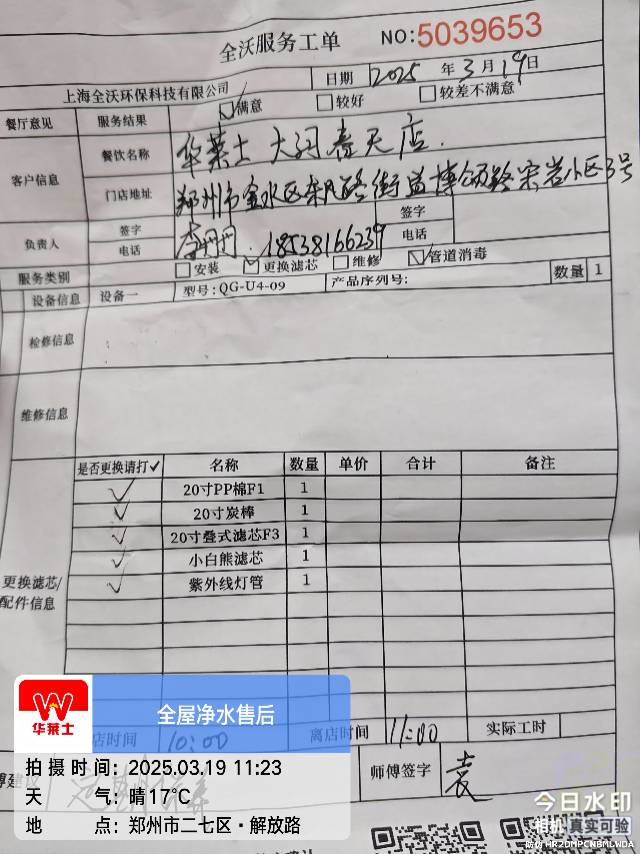 全沃服务工单 NO:5039653
上海全沃环保科技有限公司 日期 2025 年 3 月 19 日
餐厅意见 服务结果 ☑满意 □较好 □较差不满意
客户信息 餐饮名称 华莱士 大河春天店
门店地址 郑州市金水区东风路街道博颂路宋岩小区3号
负责人 签字 李丹丹 签字
电话 18538166239 电话
服务类别 □安装 ☑更换滤芯 □维修 ☑管道消毒
设备信息 设备一 型号:QG-U4-09 产品序列号: 数量 1
检修信息
维修信息
是否更换请打✓ 名称 数量 单价 合计 备注
✓ 20寸PP棉F1 1
✓ 20寸炭棒 1
✓ 20寸叠式滤芯F3 1
✓ 小白熊滤芯 1
✓ 紫外线灯管 1
更换滤芯/
配件信息
店时间 10:00 离店时间 11:00 实际工时
师傅签字 袁
华莱士
全屋净水售后
拍摄时间:2025.03.19 11:23
天气:晴17°C
地点:郑州市二七区·解放路
今日水印
相机 真实可验
防伪 HR2DMPCNBMLWDA